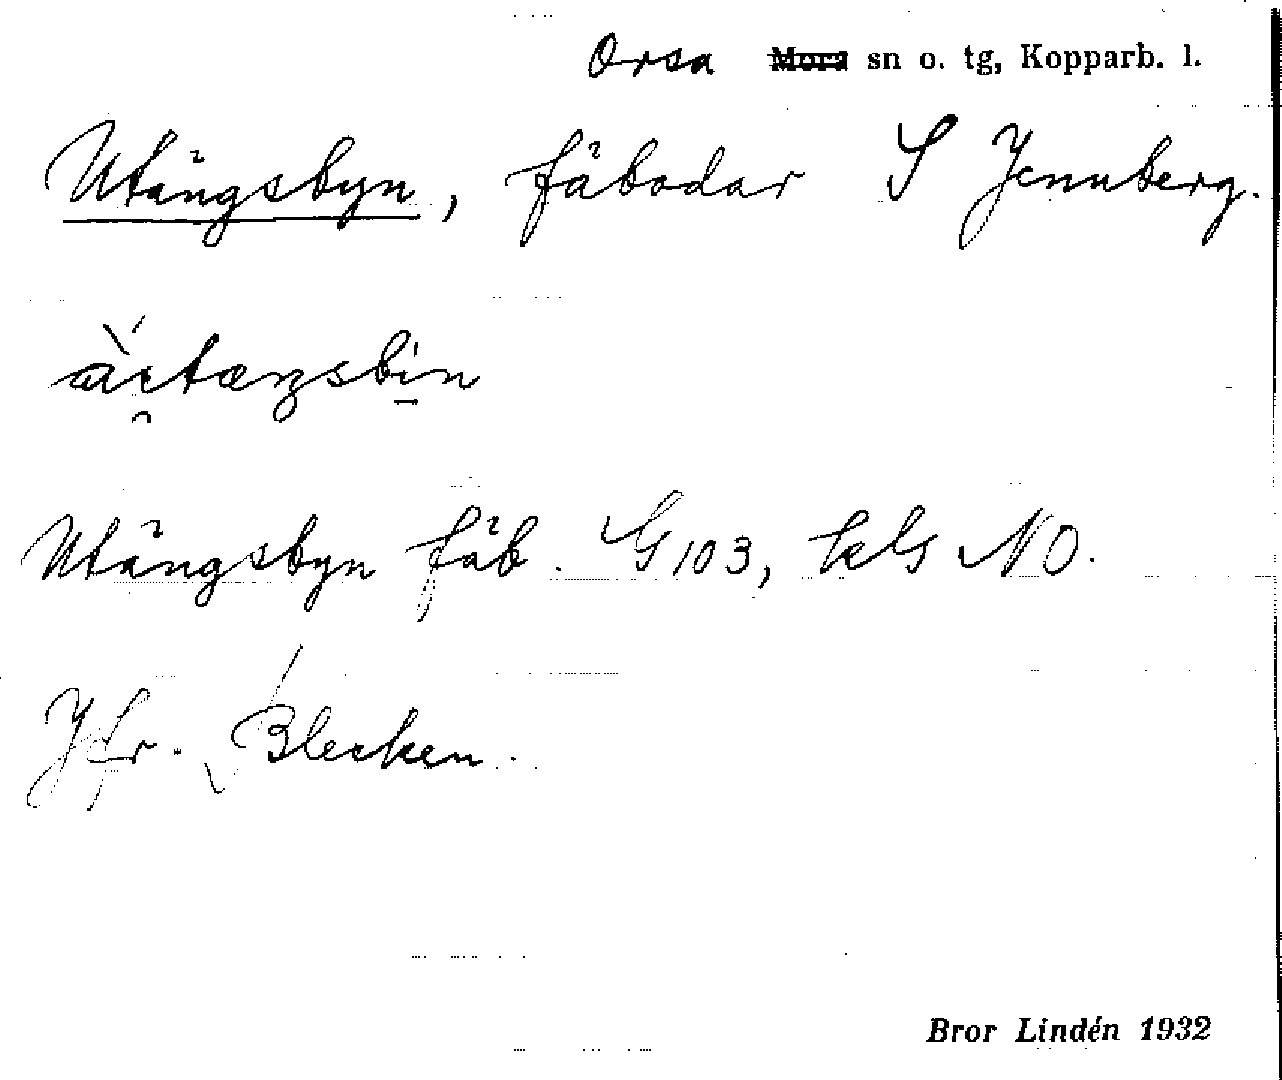 Orsa ~~Mora~~ sn o. tg, Kopparb. l.
Utängsbyn, fäbodar S Jennberg.
Utängsbyn fäb. G103, kls NO.
Jfr. Blecken.
Bror Lindén 1932